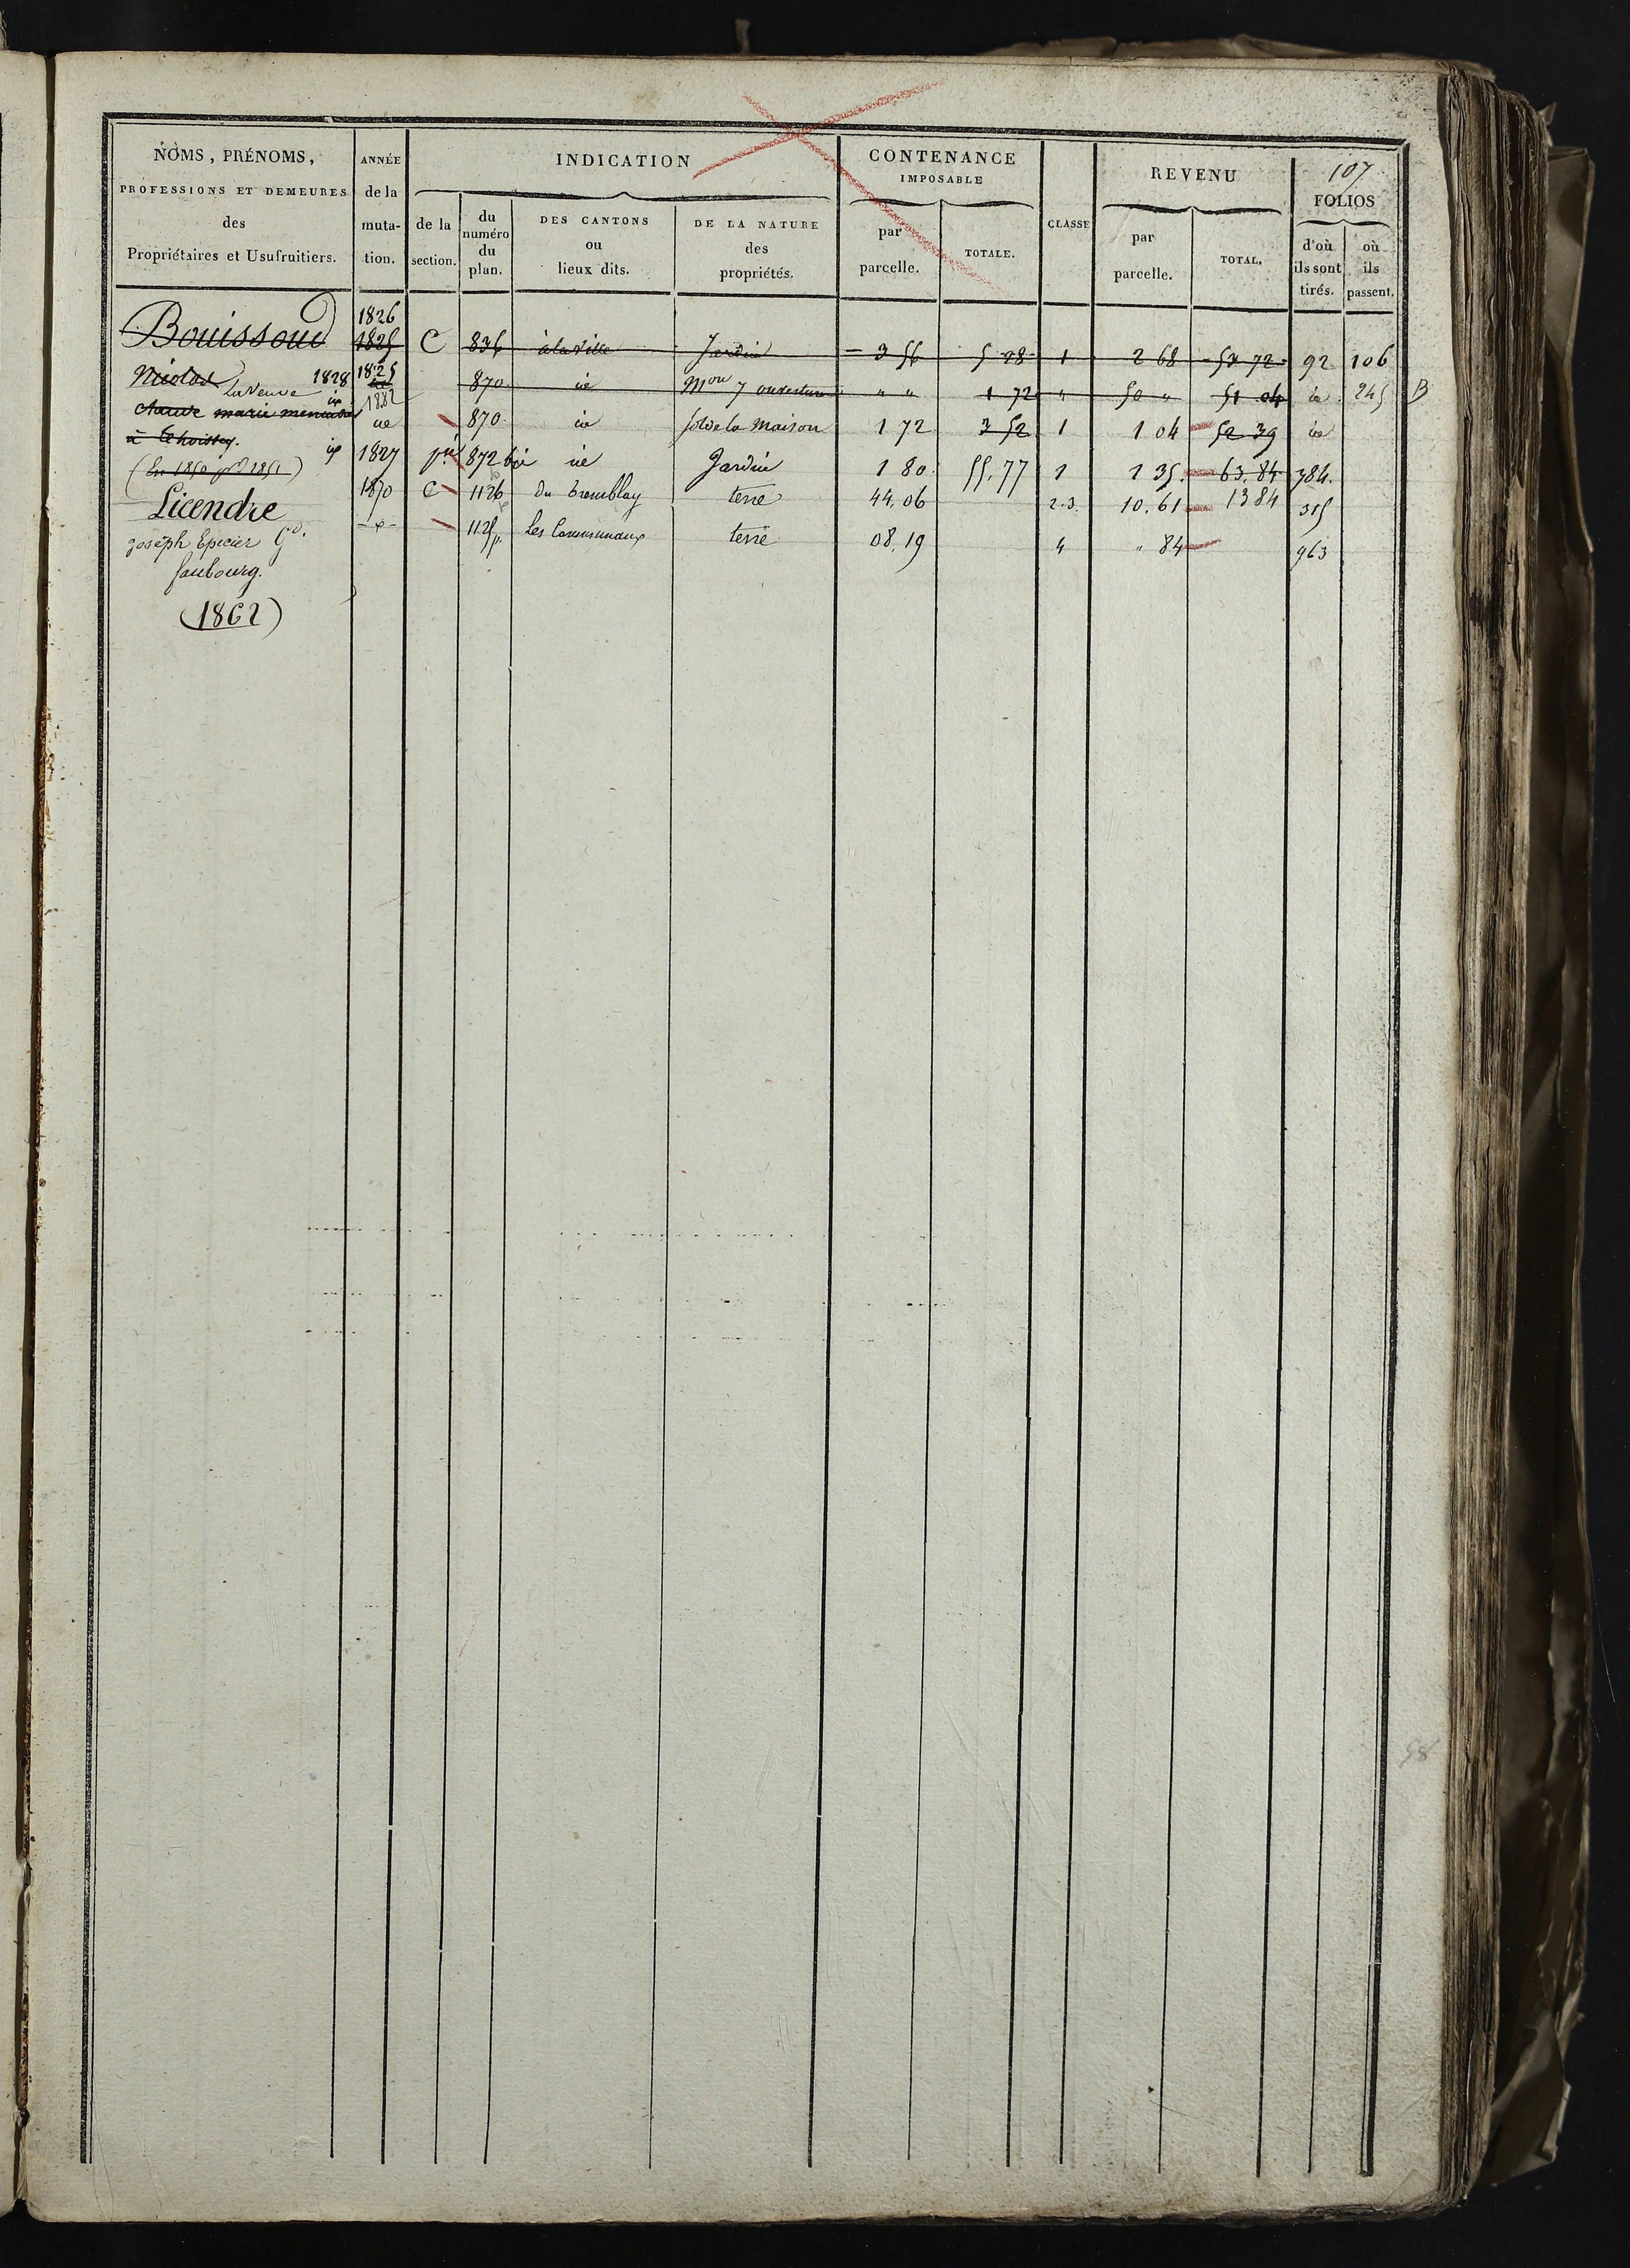 107
NOMS, PRÉNOMS,
PROFESSIONS ET DEMEURES
des
Propriétaires et Usufruitiers.
ANNÉE
de la
muta-
tion.
INDICATION
de la
section.
du
numéro
du
plan.
DES CANTONS
ou
lieux dits.
DE LA NATURE
des
propriétés.
CONTENANCE
IMPOSABLE
par
parcelle.
TOTALE.
CLASSE
REVENU
par
parcelle.
TOTAL.
FOLIOS
d'où
ils sont
tirés.
où
ils
passent.
Bouissoud
Nicolas
La Veuve 1828
marie
à Thoissey.
Licendre
Joseph Epicier
faubourg.
(1862)
1826
1825 C 836 à la ville Jardin 3 56 5 28 1 2 68 53 72 92 106
1825
1882 870 id Mon 7 ouvertures " " 1 72 " 50 " 51 04 id 245 B
id 870 id sol de la Maison 1 72 3 52 1 1 04 52 39 id
1827 pie 872 bis id Jardin 1 80 55.77 1 1 35. 63.84 384.
1870 C 1126 du tremblay terre 44.06 2.3. 10.61 13 84 315
1125p. Les Communaux terre 08.19 4 " 84 963
98